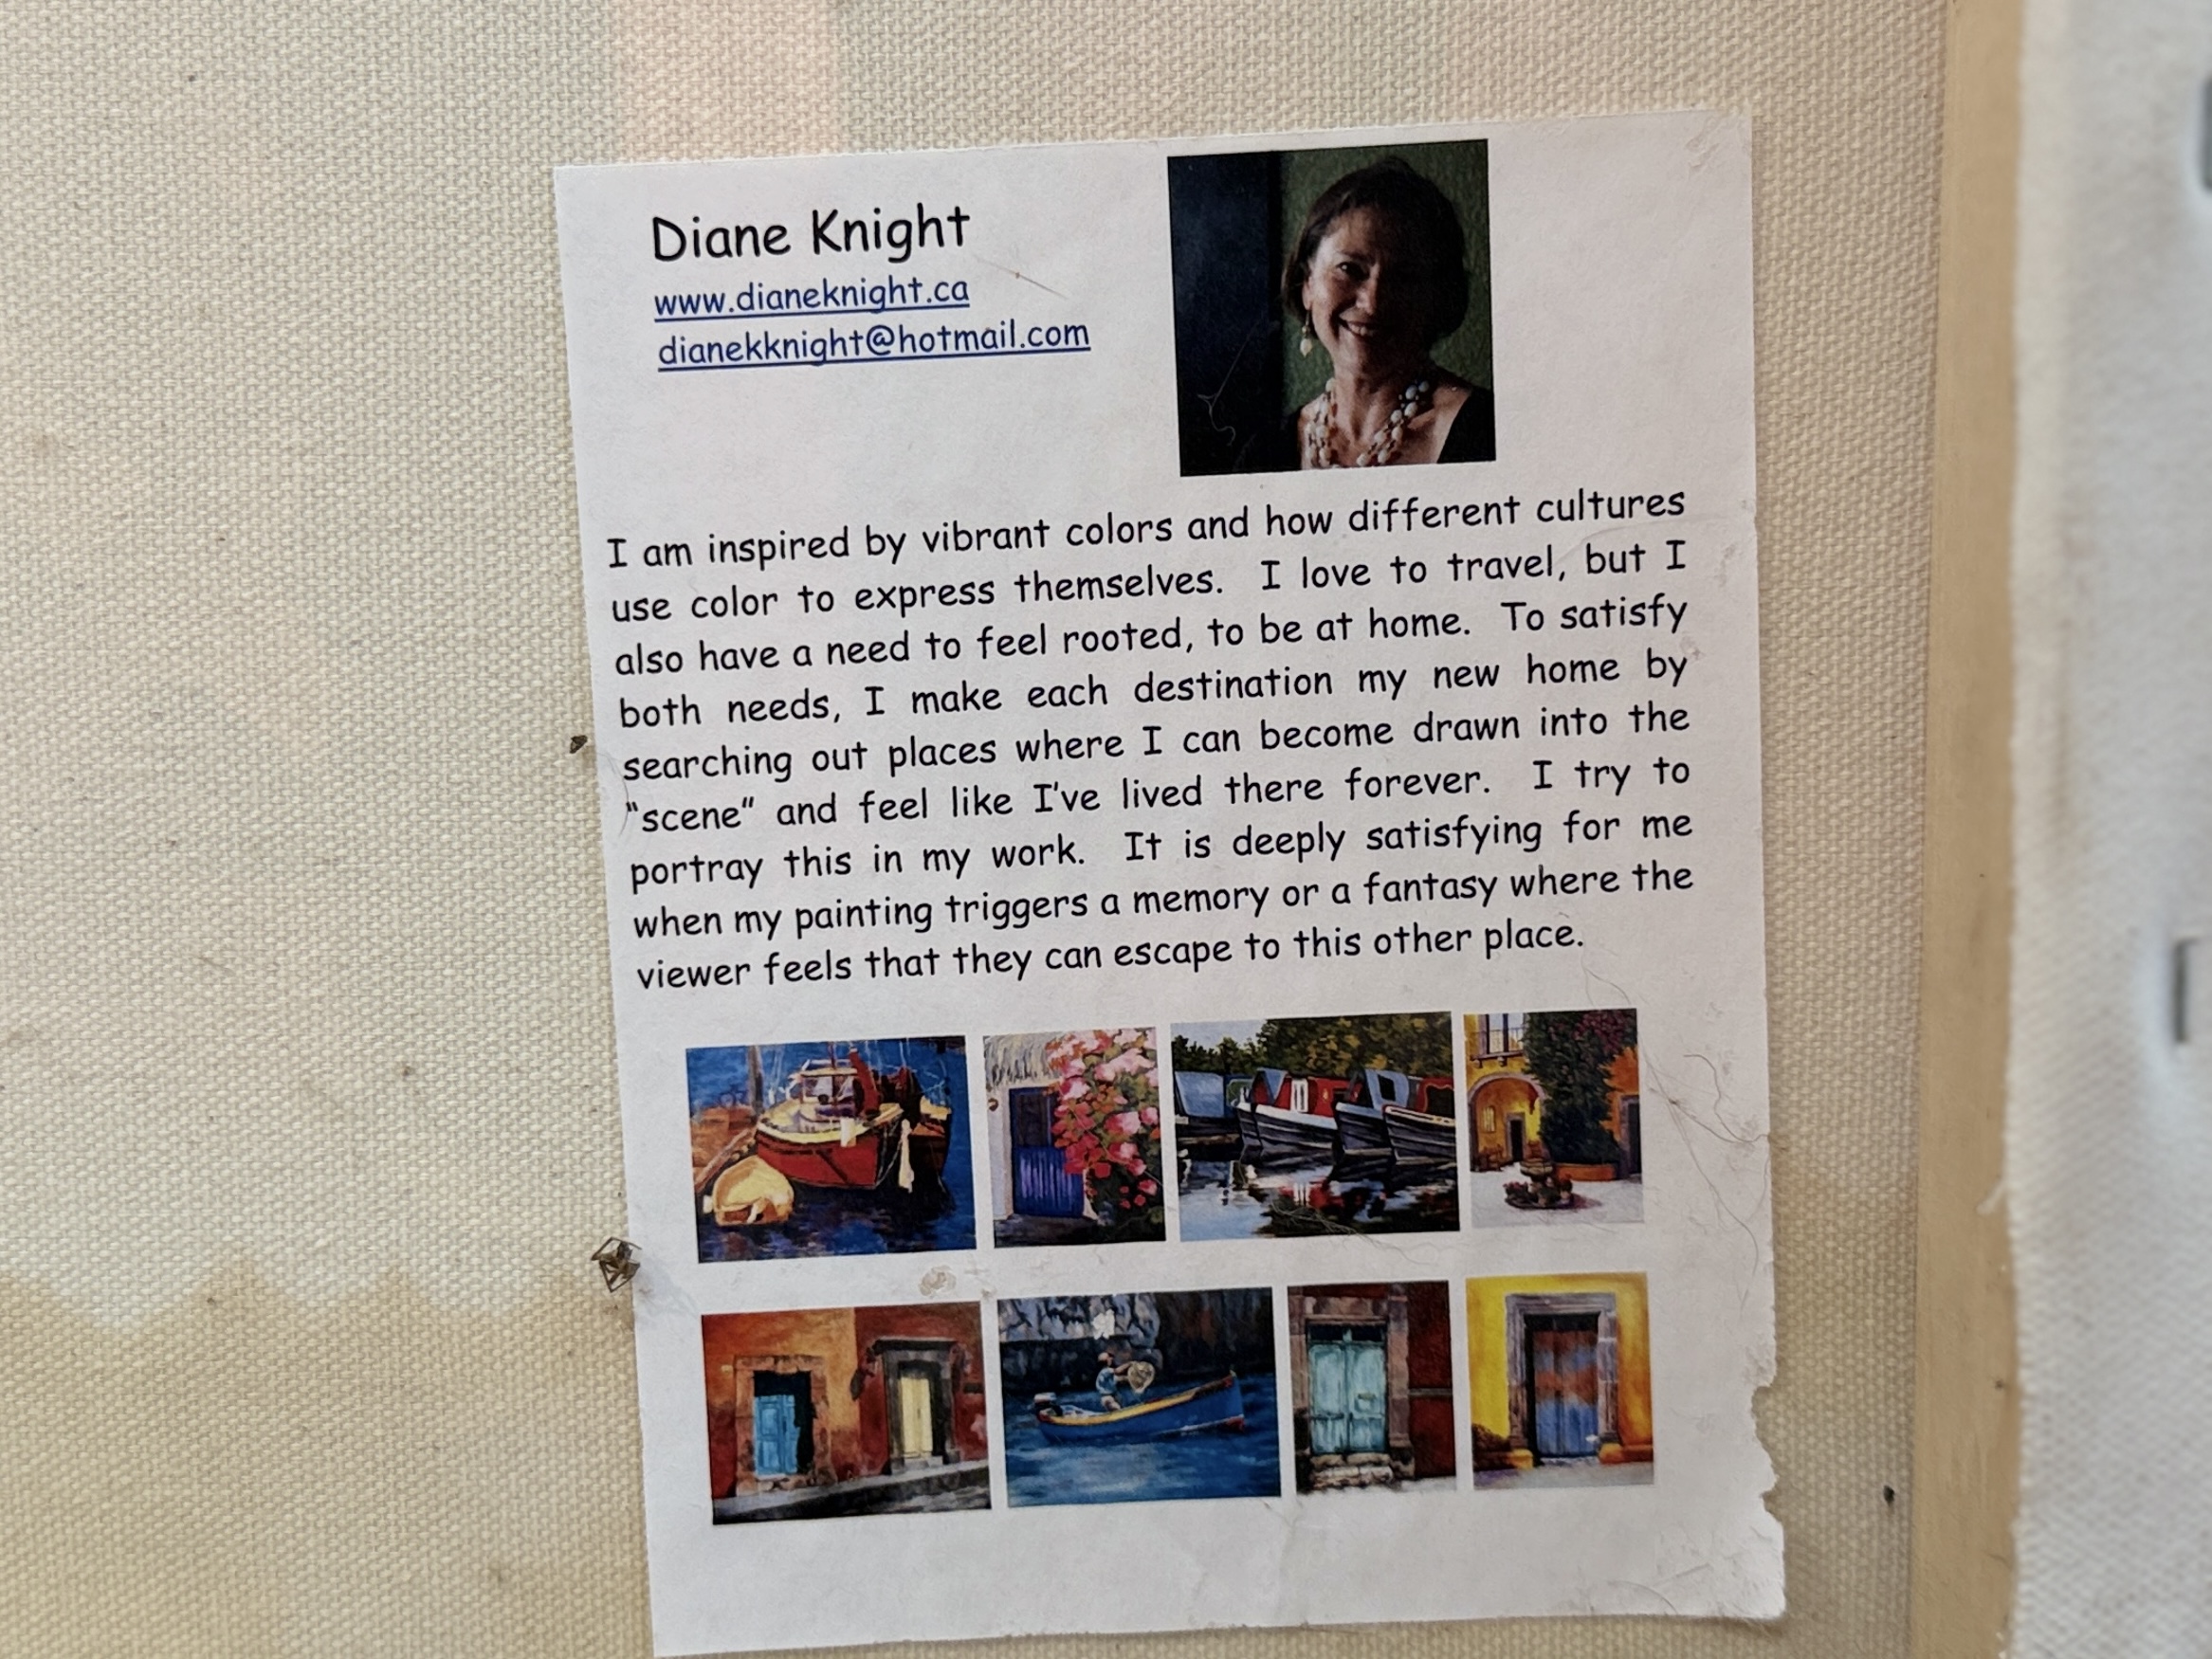 Diane Knight
www.dianeknight.ca
dianekknight@hotmail.com
I am inspired by vibrant colors and how different cultures
use color to express themselves. I love to travel, but I
also have a need to feel rooted, to be at home. To satisfy
both needs, I make each destination my new home by
searching out places where I can become drawn into the
"scene" and feel like I've lived there forever. I try to
portray this in my work. It is deeply satisfying for me
when my painting triggers a memory or a fantasy where the
viewer feels that they can escape to this other place.